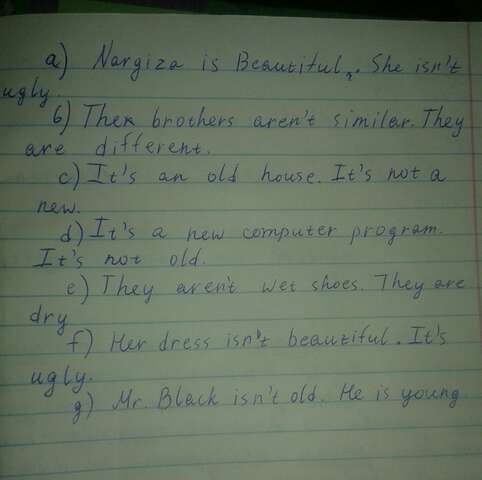 a) Nargiza is Beautiful. She isn't
ugly.
б) Their brothers aren't similar. They
are different.
c) It's an old house. It's not a
new.
d) It's a new computer program.
It's not old.
e) They aren't wet shoes. They are
dry
f) Her dress isn't beautiful. It's
ugly.
g) Mr. Black isn't old. He is young